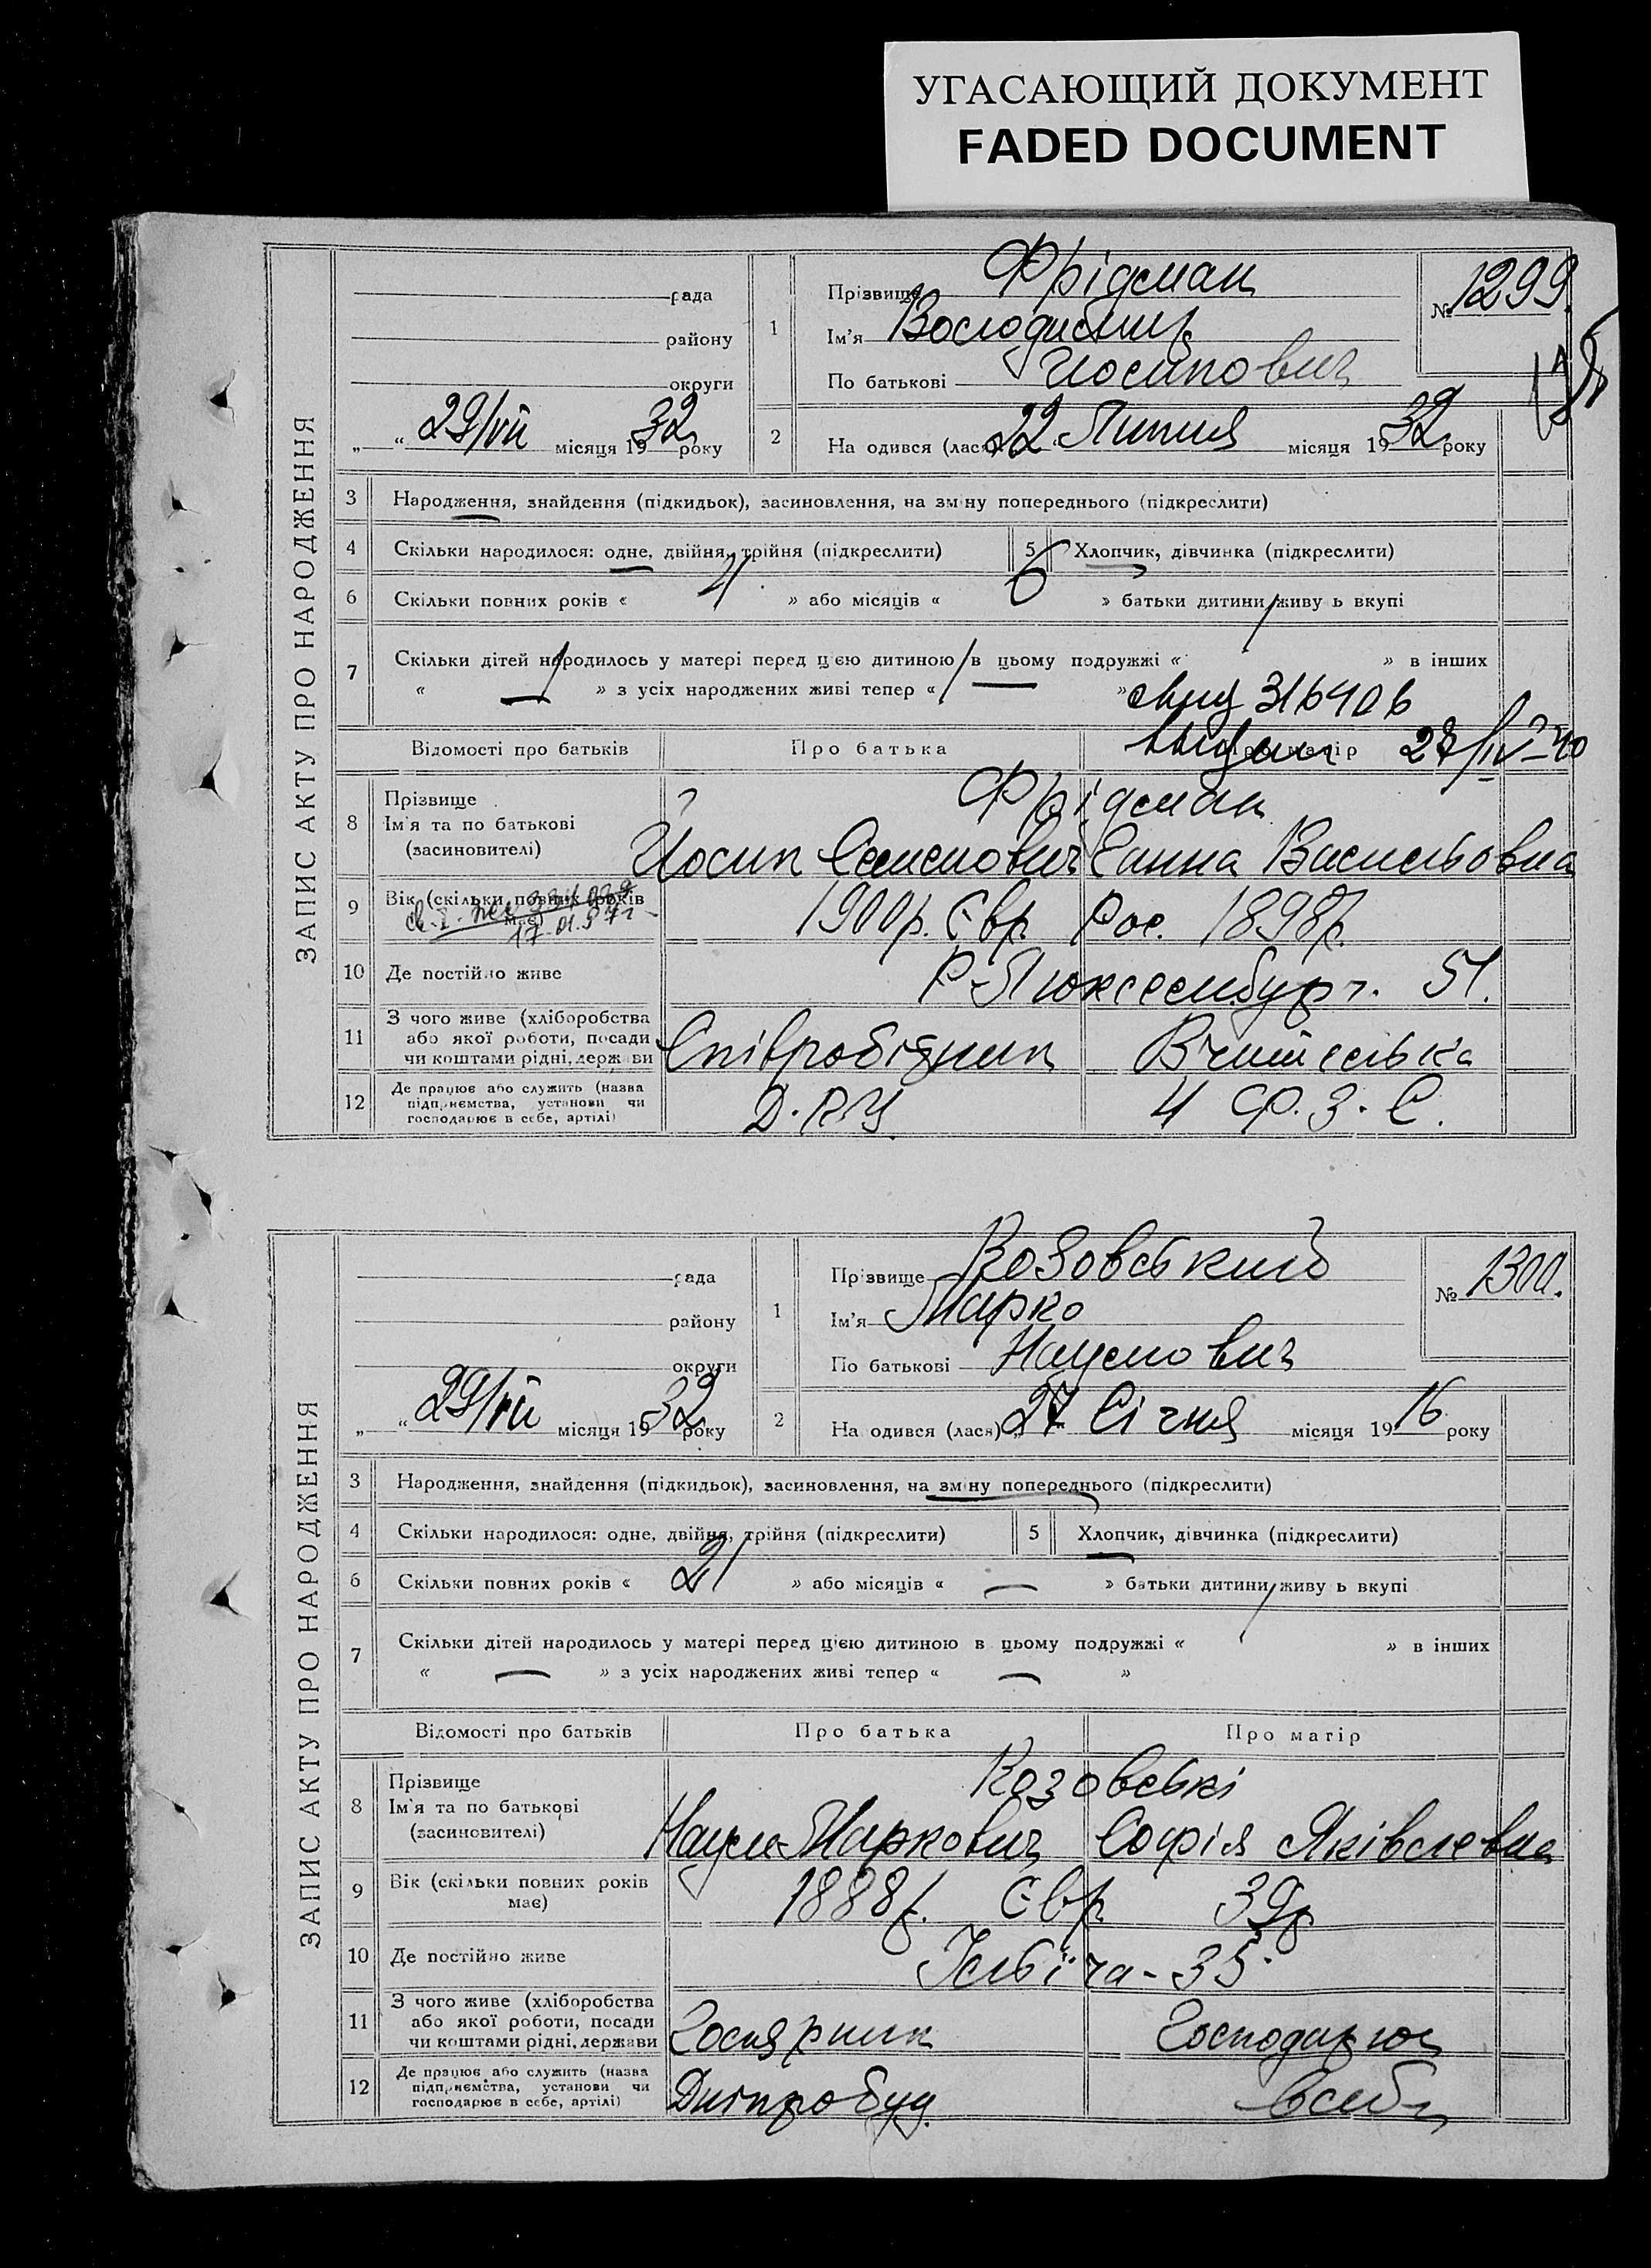 УГАСАЮЩИЙ ДОКУМЕНТ
FADED DOCUMENT
ЗАПИС АКТУ ПРО НАРОДЖЕННЯ
рада
району
округи
„ “ 29/VII місяця 1932 року
1
Прізвище Фрідман
Ім'я Володимир
По батькові Йосипович
№ 1299.
2
На одився (лася) 22 Липня місяця 1932 року
3 Народження, знайдення (підкидьок), засиновлення, на зміну попереднього (підкреслити)
4 Скільки народилося: одне, двійня, трійня (підкреслити) 5 Хлопчик, дівчинка (підкреслити)
6 Скільки повних років « » або місяців « 6 » батьки дитини живу ь вкупі
7 Скільки дітей народилось у матері перед цією дитиною в цьому подружжі « » в інших
« — » з усіх народжених живі тепер « — »
316406
27/IV-40
Відомості про батьків Про батька Про матір
8 Прізвище Фрідман
Ім'я та по батькові
(засиновителі) Йосип Семенович Ганна Васильовна
9 Вік (скільки повних років має) 1900р. Євр Рос. 1898р.
17.01.57г
10 Де постійно живе Р-Люксембург. 51.
11 З чого живе (хліборобства
або якої роботи, посади
чи коштами рідні, держави Співробітник Вчителька
12 Де працює або служить (назва
підприємства, установи чи
господарює в себе, артілі) Д.П.У. 4 Ф.З.С.
ЗАПИС АКТУ ПРО НАРОДЖЕННЯ
рада
району
округи
„ “ 29/VII місяця 1932 року
1
Прізвище Козовський
Ім'я Марко
По батькові Наумович
№ 1300.
2
На одився (лася) „ 27 Січня місяця 1916 року
3 Народження, знайдення (підкидьок), засиновлення, на зміну попереднього (підкреслити)
4 Скільки народилося: одне, двійня, трійня (підкреслити) 5 Хлопчик, дівчинка (підкреслити)
6 Скільки повних років « 21 » або місяців « — » батьки дитини живу ь вкупі
7 Скільки дітей народилось у матері перед цією дитиною в цьому подружжі « » в інших
« — » з усіх народжених живі тепер « — »
Відомості про батьків Про батька Про матір
8 Прізвище Козовські
Ім'я та по батькові
(засиновителі) Наум Маркович Софія Яківлевна
9 Вік (скільки повних років
має) 1888р. Євр 39р
10 Де постійно живе Ілліча-35
11 З чого живе (хліборобства
або якої роботи, посади
чи коштами рідні, держави Господарює
12 Де працює або служить (назва
підприємства, установи чи
господарює в себе, артілі) Дніпробуд. в себе